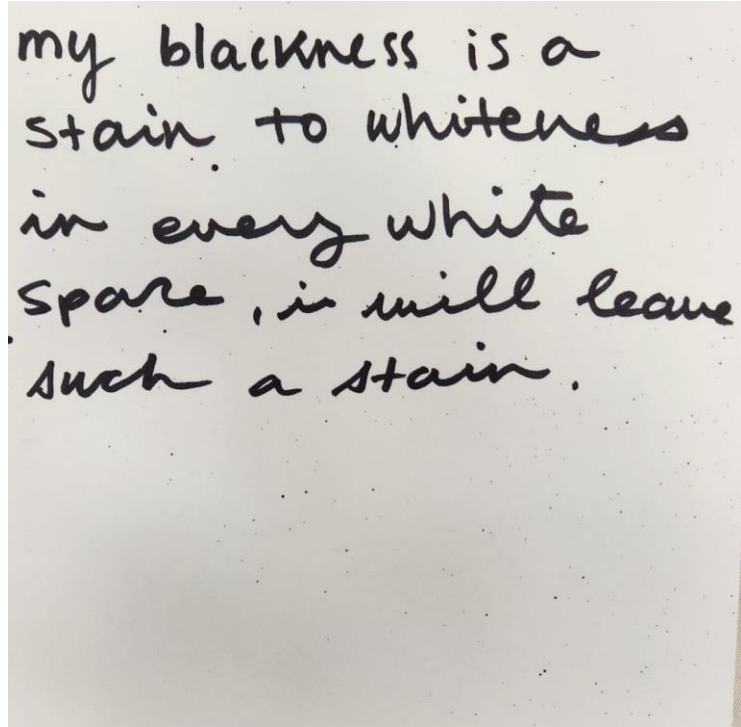 my blackness is a
stain to whiteness
in every white
space, i will leave
such a stain.